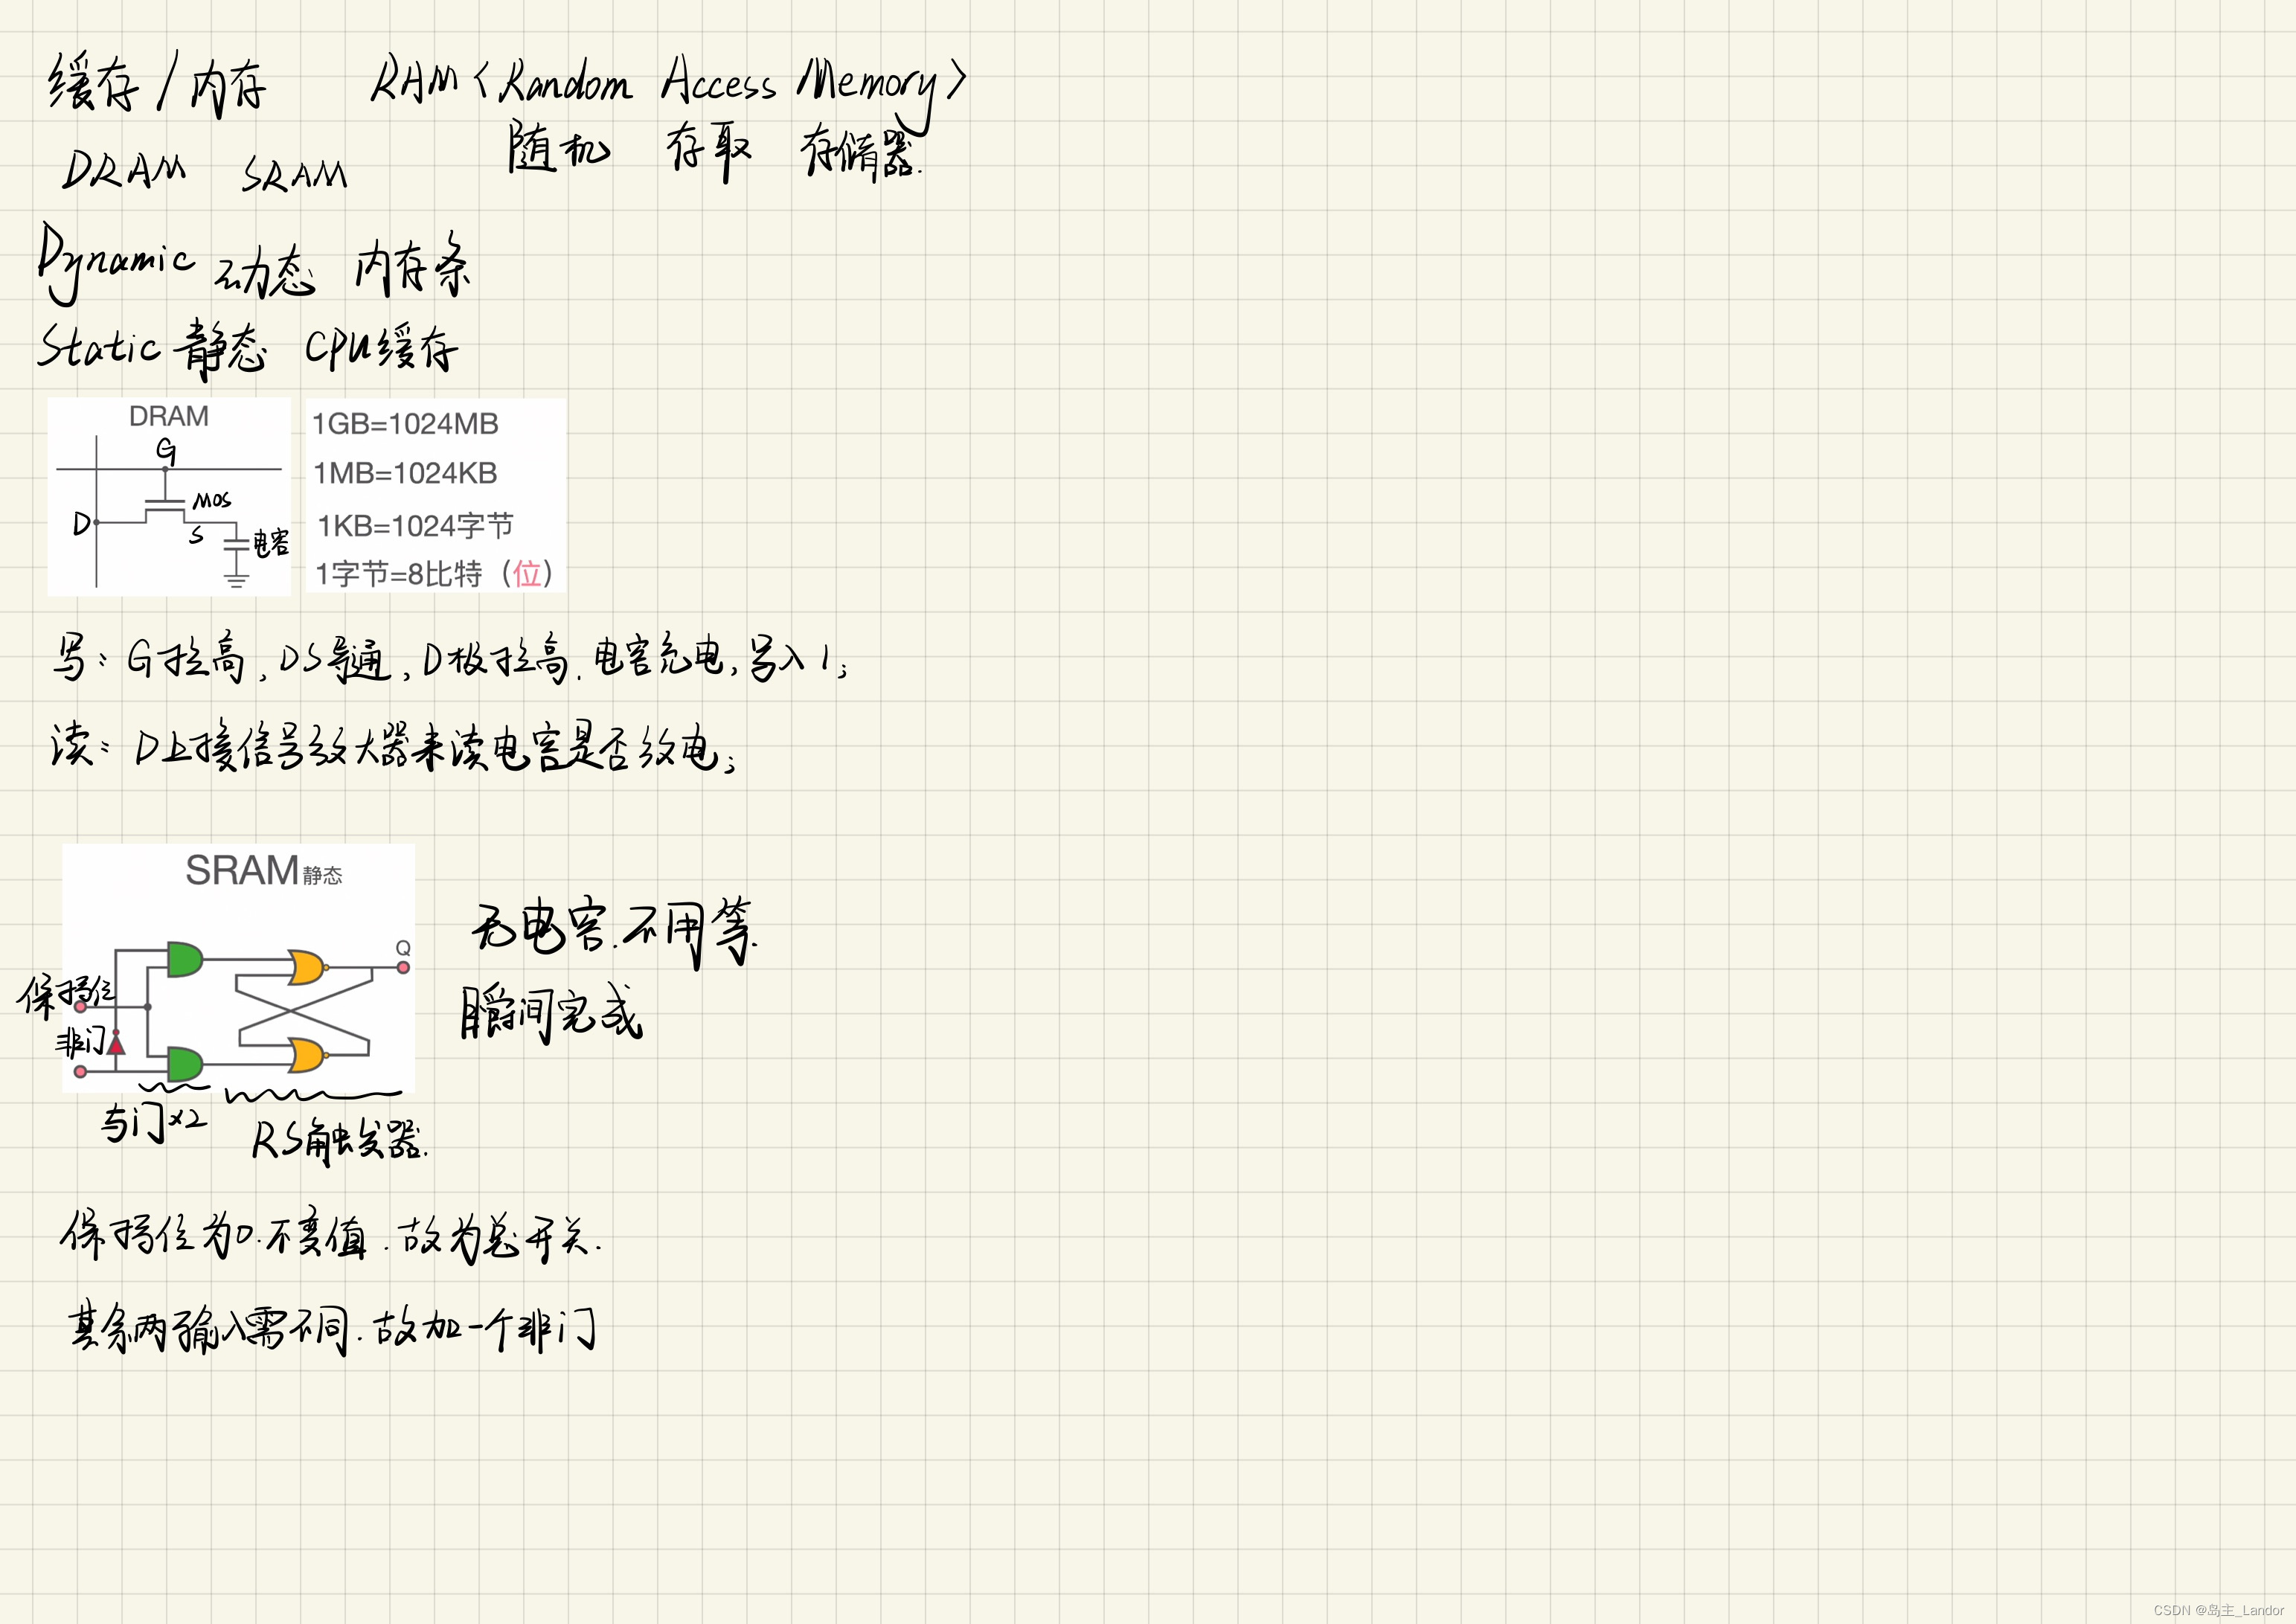 缓存/内存 RAM<Random Access Memory>
随机 存取 存储器.
DRAM SRAM
Dynamic 动态 内存条
Static 静态 CPU缓存
DRAM
G
MOS
D
S
电容
1GB=1024MB
1MB=1024KB
1KB=1024字节
1字节=8比特（位）
写：G拉高,DS导通,D极拉高.电容充电,写入1;
读：D上接信号放大器来读电容是否放电;
SRAM静态
Q
无电容.不用等.
瞬间完成
保持位
非门
与门×2
RS触发器.
保持位为0.不变值.故为总开关.
其余两输入需不同.故加一个非门
CSDN @岛主_Landor